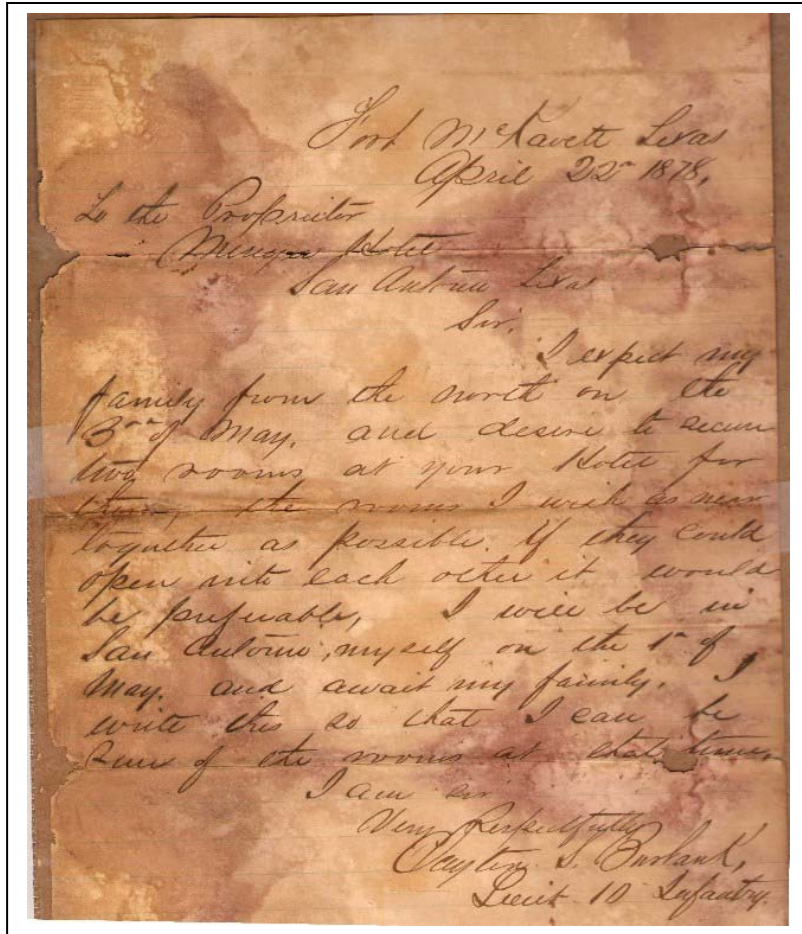 Fort McKavett Texas
April 22nd 1878,
To the Proprietor
Menger Hotel
San Antonio Texas
Sir,
I expect my
family from the north on the
3rd of May, and desire to secure
two rooms at your Hotel for
them, the rooms I wish as near
together as possible. If they could
open into each other it would
be preferable, I will be in
San Antonio, myself on the 1st of
May, and await my family. I
write this so that I can be
sure of the rooms at that time,
I am sir
Very Respectfully
Clayton S. Burbank,
Lieut 10 Infantry.